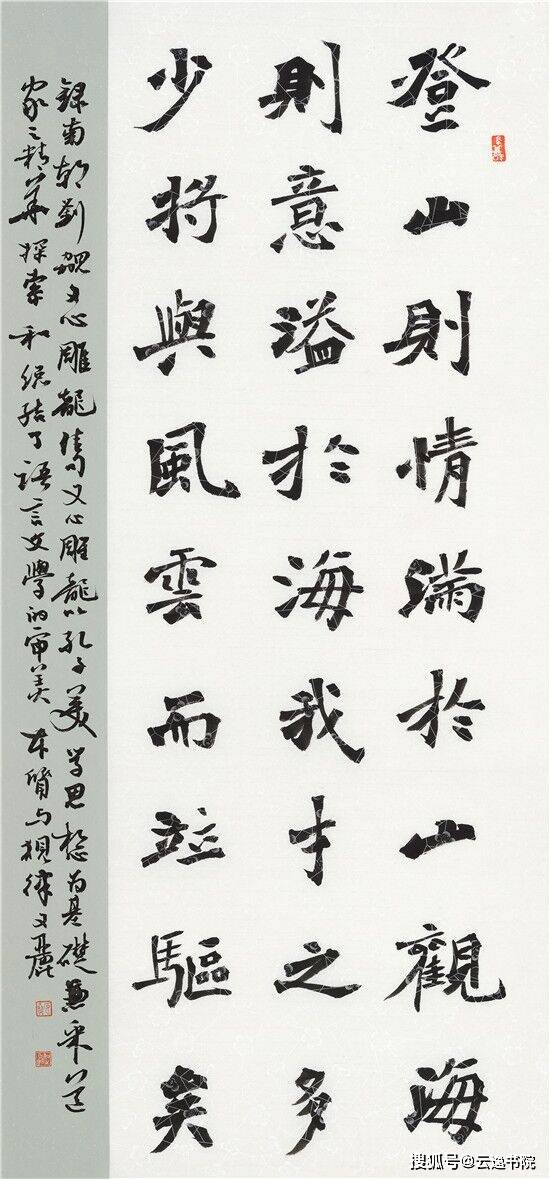 登山則情滿於山觀海
則意溢於海我才之多
少將與風雲而竝驅矣
録南朝劉勰文心雕龍文心雕龍以孔子美学思想为基礎兼采道
家之精华探索和總结了語言文學的审美本質与規律文麗
搜狐号@云逸书院